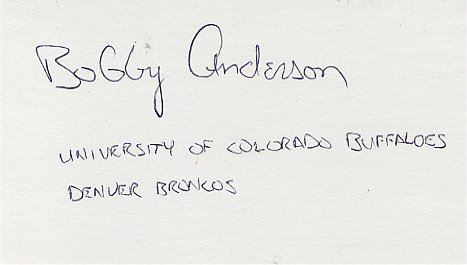 Bobby Anderson
UNIVERSITY OF COLORADO BUFFALOES
DENVER BRONCOS